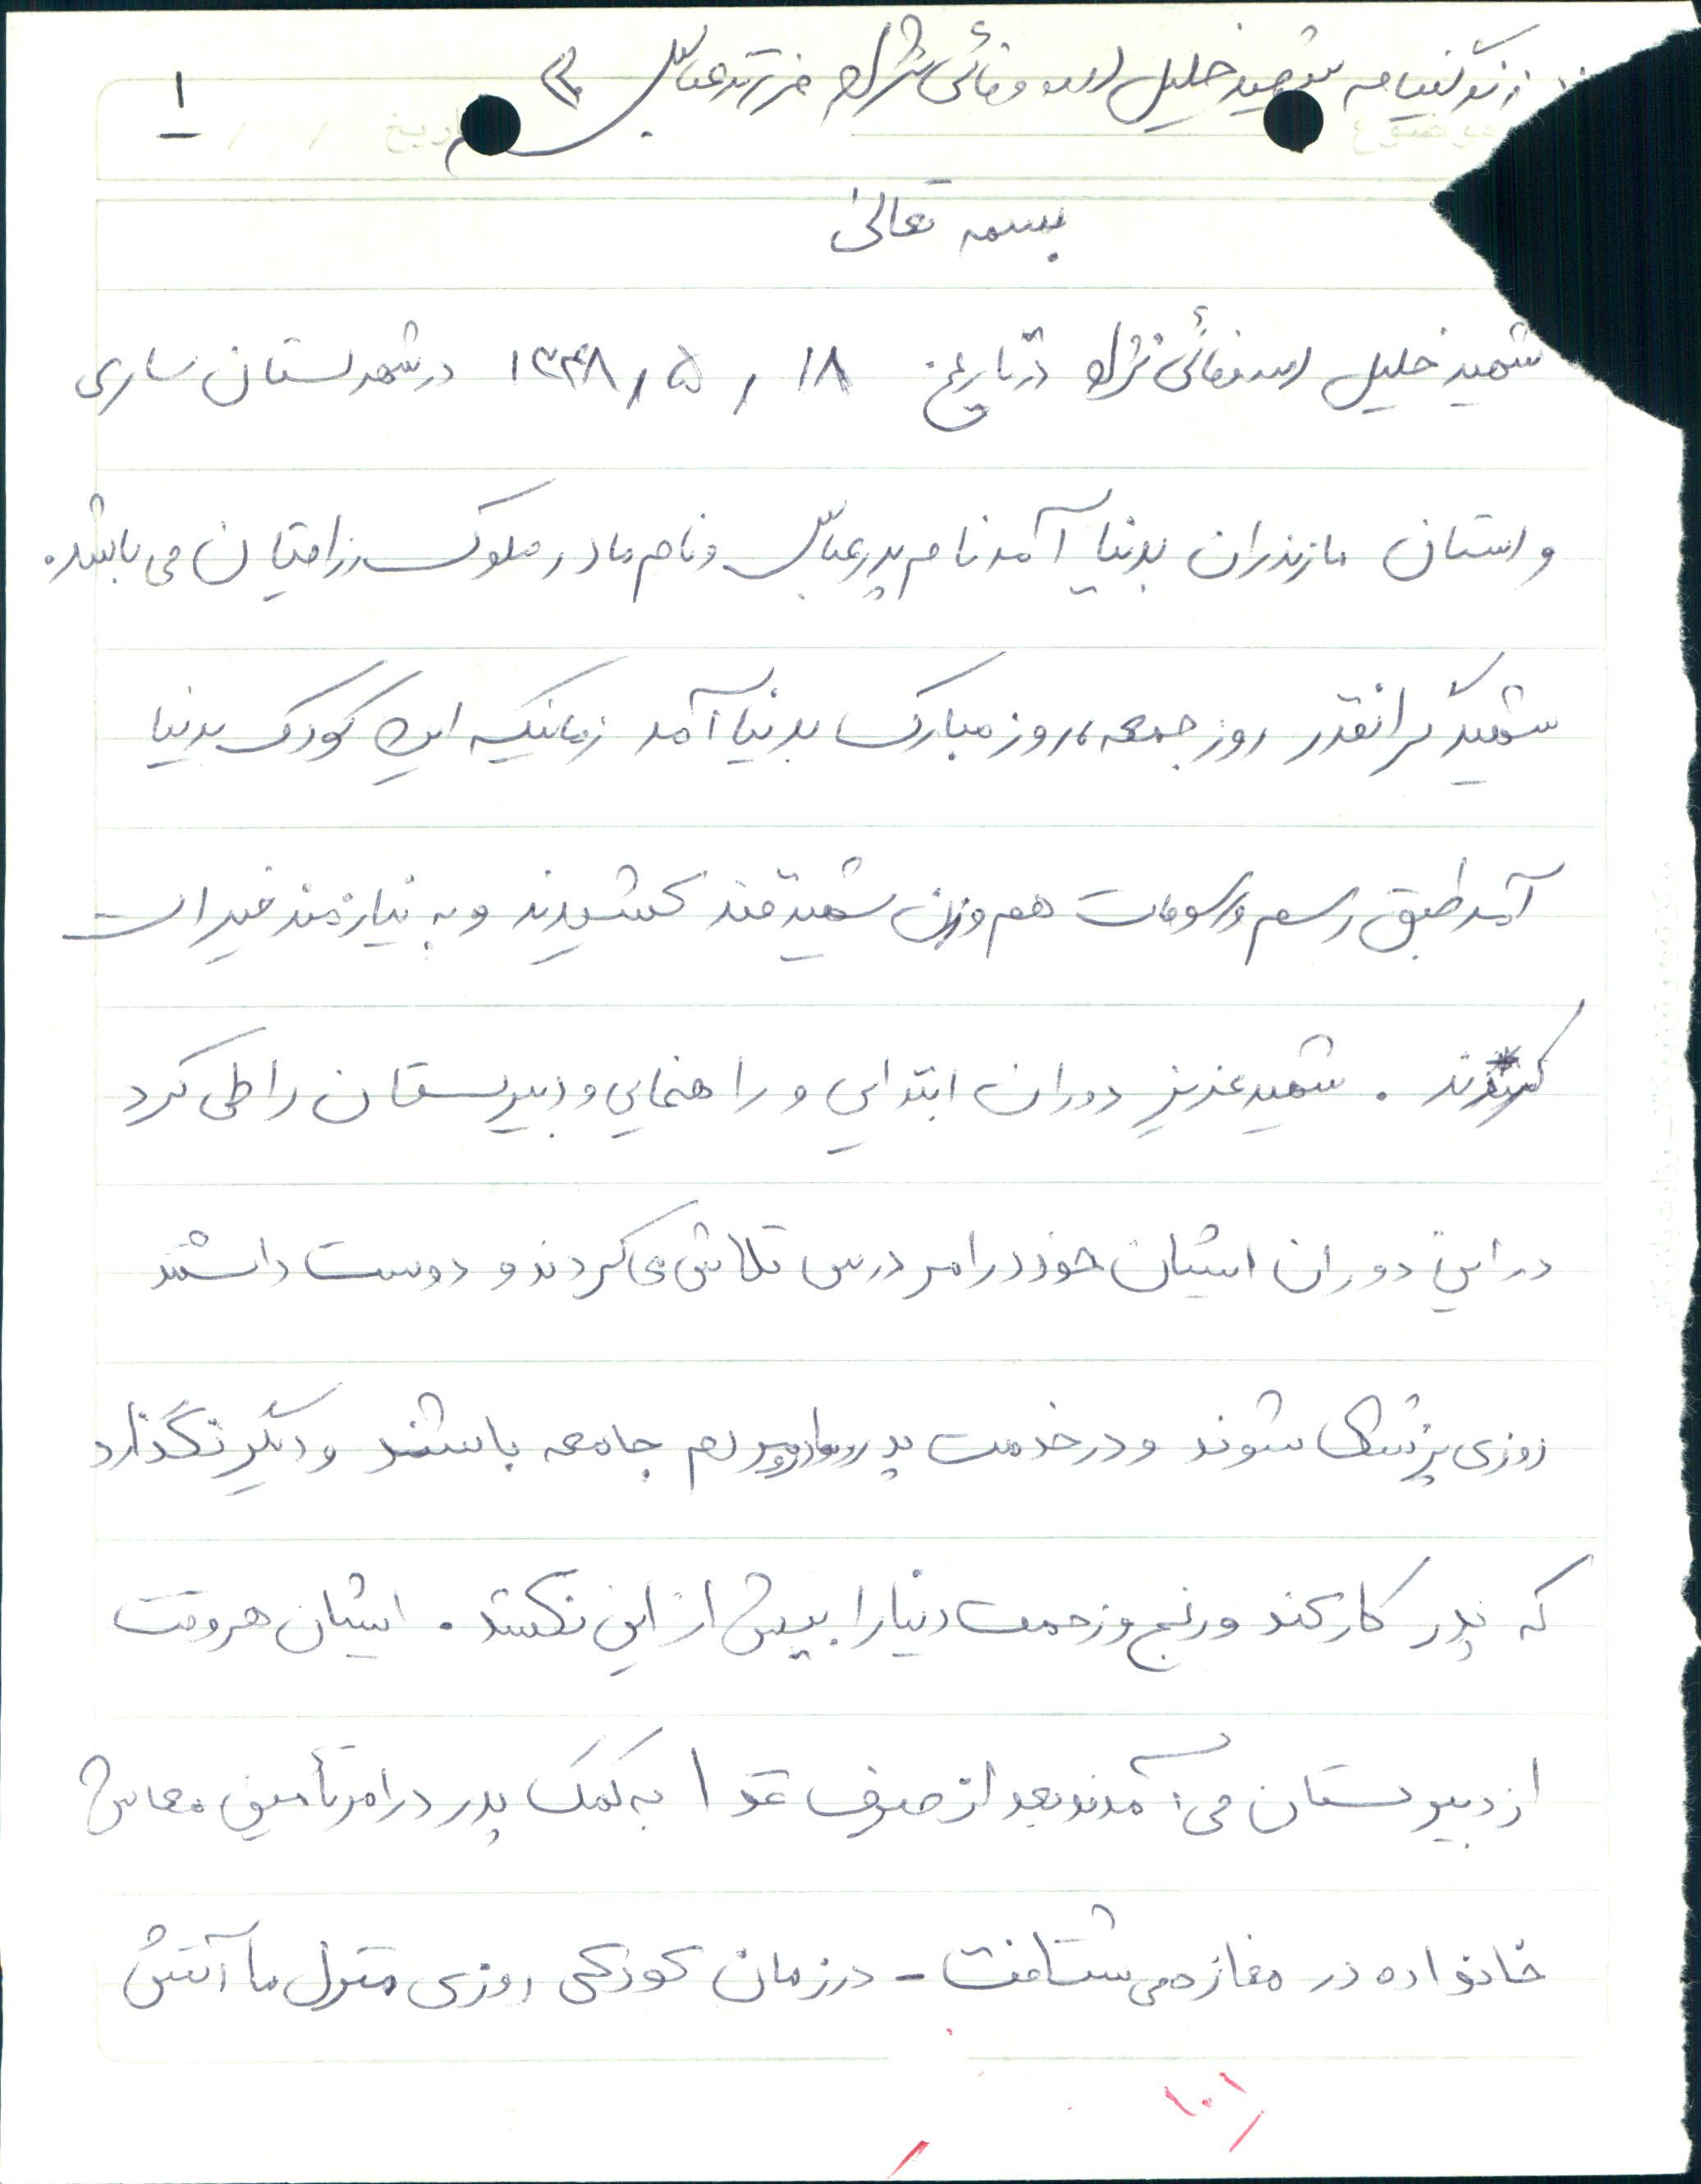 زندگینامه شهید خلیل فرزند عباس
۱
بسمه تعالی
شهید خلیل در تاریخ ۱۸ / ۵ / ۱۳۴۸ در شهرستان ساری
و استان مازندران بدنیا آمد نام پدر عباس و نام مادر ملوک رزاقیان می باشد.
شهید گرانقدر روز جمعه، روز مبارک بدنیا آمد زمانیکه این کودک بدنیا
آمد طبق رسم و رسومات هم وزن شهید قند کشیدند و به نیازمند خیرات
کردند . شهید عزیز دوران ابتدایی و راهنمایی و دبیرستان را طی کرد
در این دوران ایشان خود در امر درس تلاش می کردند و دوست داشتند
روزی پزشک شوند و در خدمت پدر و مادر و مردم جامعه باشند و دیگر نگذارد
که پدر کار کند و رنج و زحمت دنیا را بیش از این نکشد . ایشان هر وقت
از دبیرستان می آمدند بعد از صرف غذا به کمک پدر در امر تأمین معاش
خانواده در مغازه می شتافت - در زمان کودکی روزی منزل ما آتش
۱۰۱